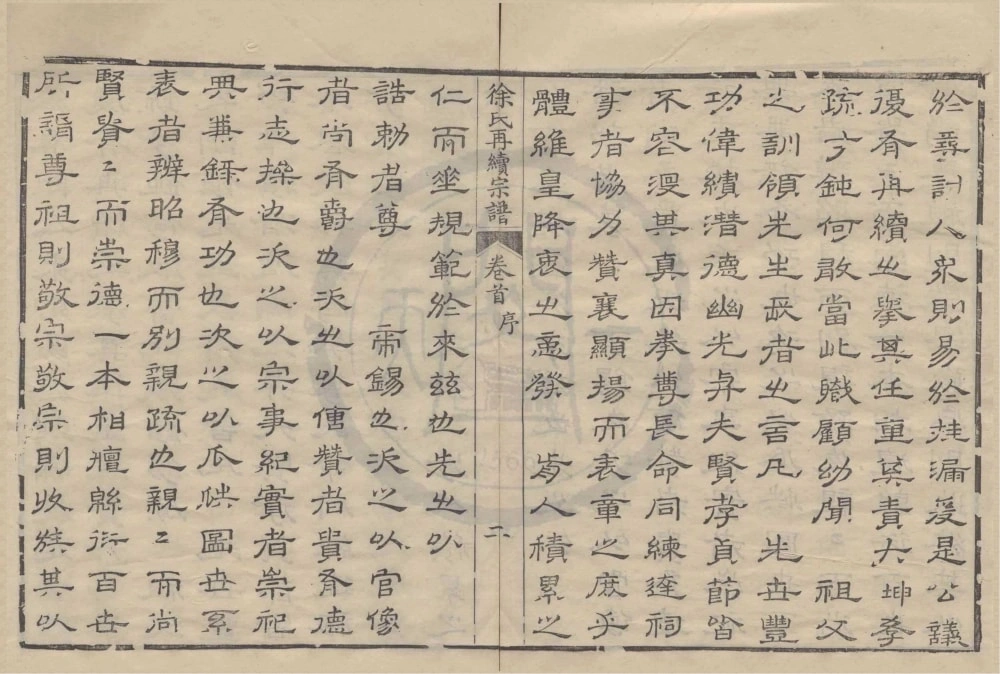 於彙討人衆則易於挂漏爰是公議
復有再續之舉其任重其責大坤學
疏才鈍何敢當此職顧幼聞　祖父
之訓領先生長者之言凡　先世豐
功偉績潛德幽光與夫賢孝貞節皆
不容沒其真因奉尊長命同練達祠
事者協力贊襄顯揚而表章之庶乎
體維皇降衷之意發　前人積累之
徐氏再續宗譜　卷首　序　二
仁而垂規範於來茲也先之以
誥勅者尊　帝錫也次之以官像
者尚有爵也次之以傳贊者貴有德
行志操也次之以宗事紀實者崇祀
典兼錄有功也次之以瓜瓞圖世系
表者辨昭穆而別親疏也親〻而尚
賢賢〻而崇德一本相禪緜衍百世
所謂尊祖則敬宗敬宗則收族其以